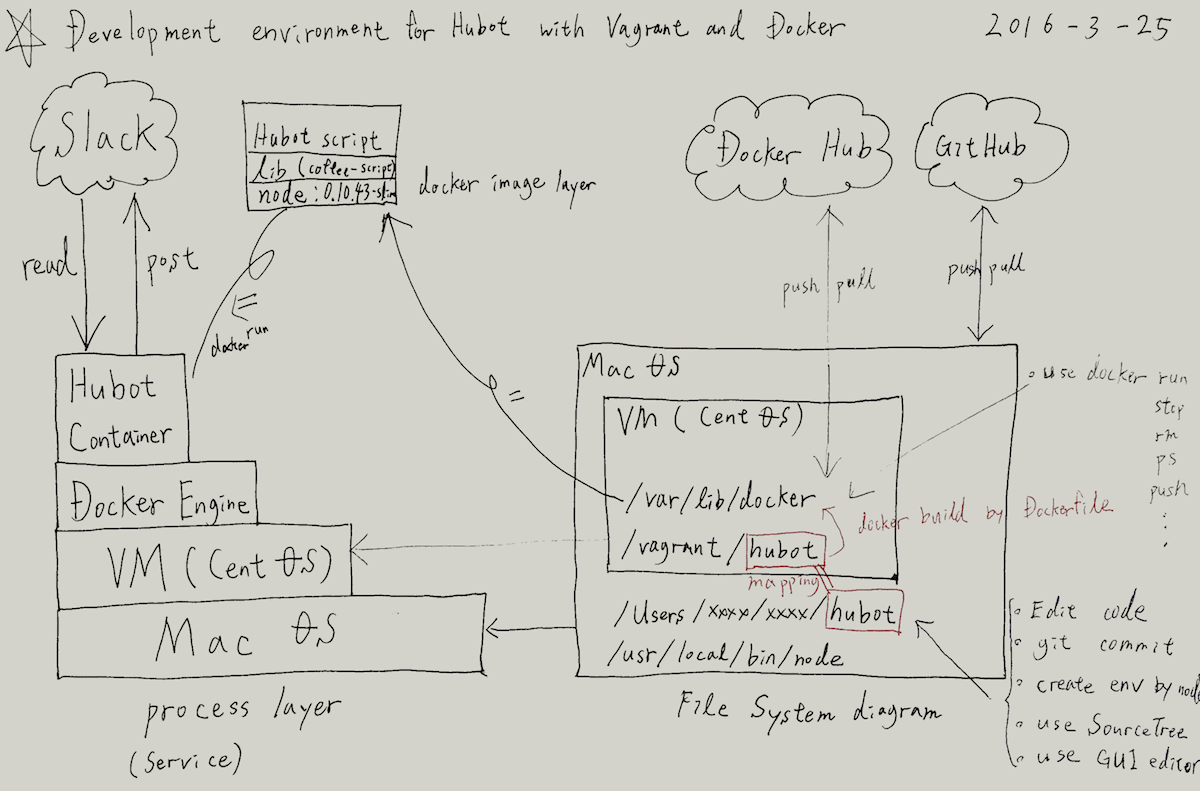 Development environment for Hubot with Vagrant and Docker
2016-3-25
Slack
read
post
Hubot script
lib (coffee-script)
node:0.10.43-slim
docker image layer
docker run
=
Docker Hub
GitHub
push pull
push pull
Hubot
Container
Docker Engine
VM (Cent OS)
Mac OS
process layer
(Service)
=
Mac OS
VM (Cent OS)
/var/lib/docker
/vagrant/hubot
mapping
docker build by Dockerfile
/Users/xxxx/xxxx/hubot
/usr/local/bin/node
File System diagram
• use docker run
stop
rm
ps
push
:
.
• Edit code
• git commit
• create env by node
• use SourceTree
• use GUI editor